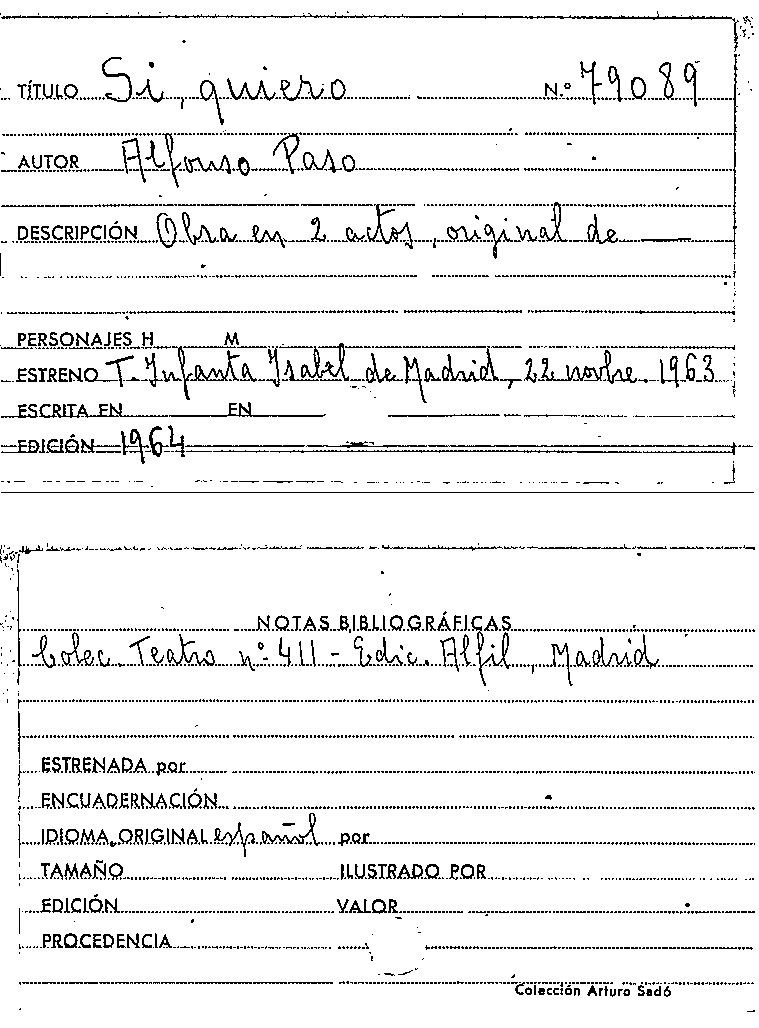 TÍTULO Si, quiero N.º 79089
AUTOR Alfonso Paso
DESCRIPCIÓN Obra en 2 actos, original de —
PERSONAJES H M
ESTRENO T. Infanta Isabel de Madrid, 22 novbre. 1963
ESCRITA EN EN
EDICIÓN 1964
NOTAS BIBLIOGRÁFICAS
Colec. Teatro nº 411 - Edic. Alfil, Madrid
ESTRENADA por
ENCUADERNACIÓN
IDIOMA ORIGINAL español por
TAMAÑO ILUSTRADO POR
EDICIÓN VALOR
PROCEDENCIA
Colección Arturo Sedó